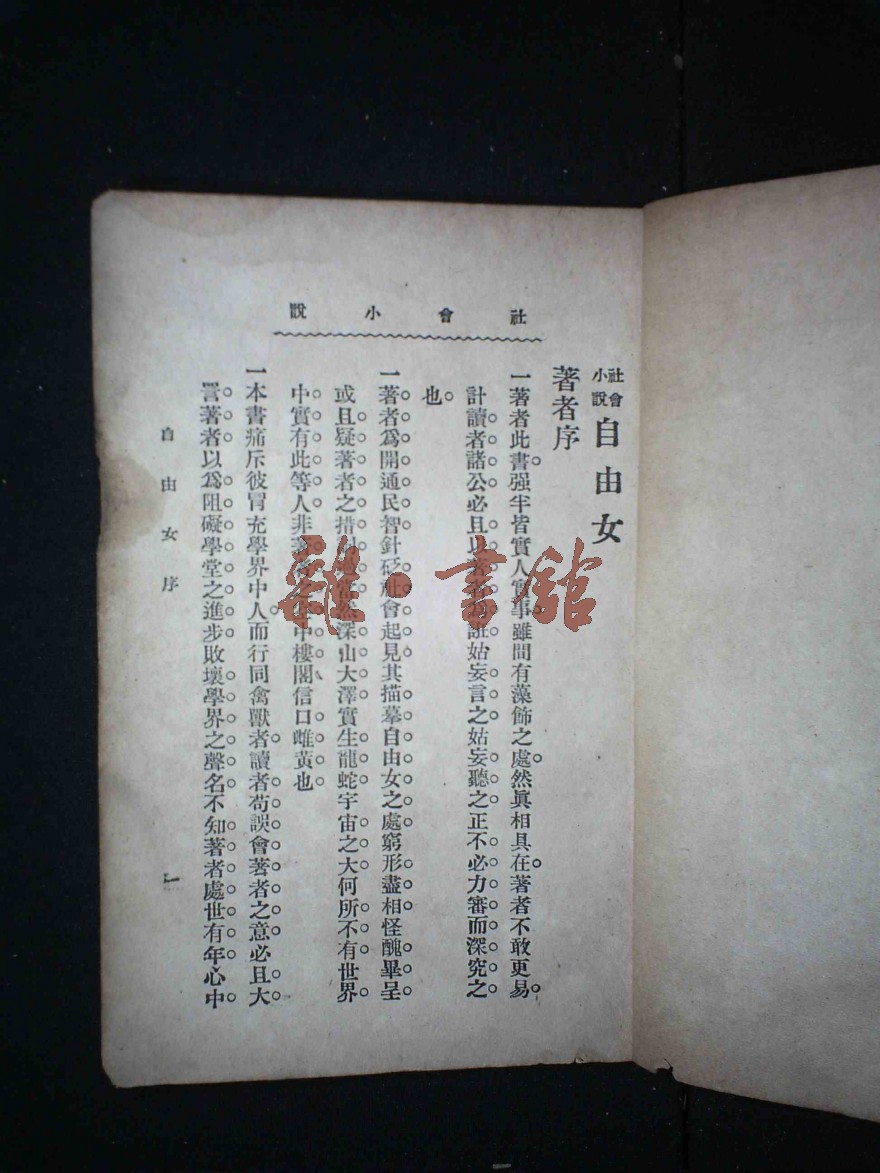 社會小說
社會小說 自由女
著者序
一著者此書强半皆實人實事雖間有藻飾之處然眞相具在著者不敢更易
計讀者諸公必且以著者爲誑姑妄言之姑妄聽之正不必力審而深究之
也
一著者爲開通民智針砭社會起見其描摹自由女之處窮形盡相怪醜畢呈
或且疑著者之措詞過當然深山大澤實生龍蛇宇宙之大何所不有世界
中實有此等人非著者之空中樓閣信口雌黃也
一本書痛斥彼冒充學界中人而行同禽獸者讀者苟誤會著者之意必且大
詈著者以爲阻礙學堂之進步敗壞學界之聲名不知著者處世有年心中
自由女序
一
雜·書館